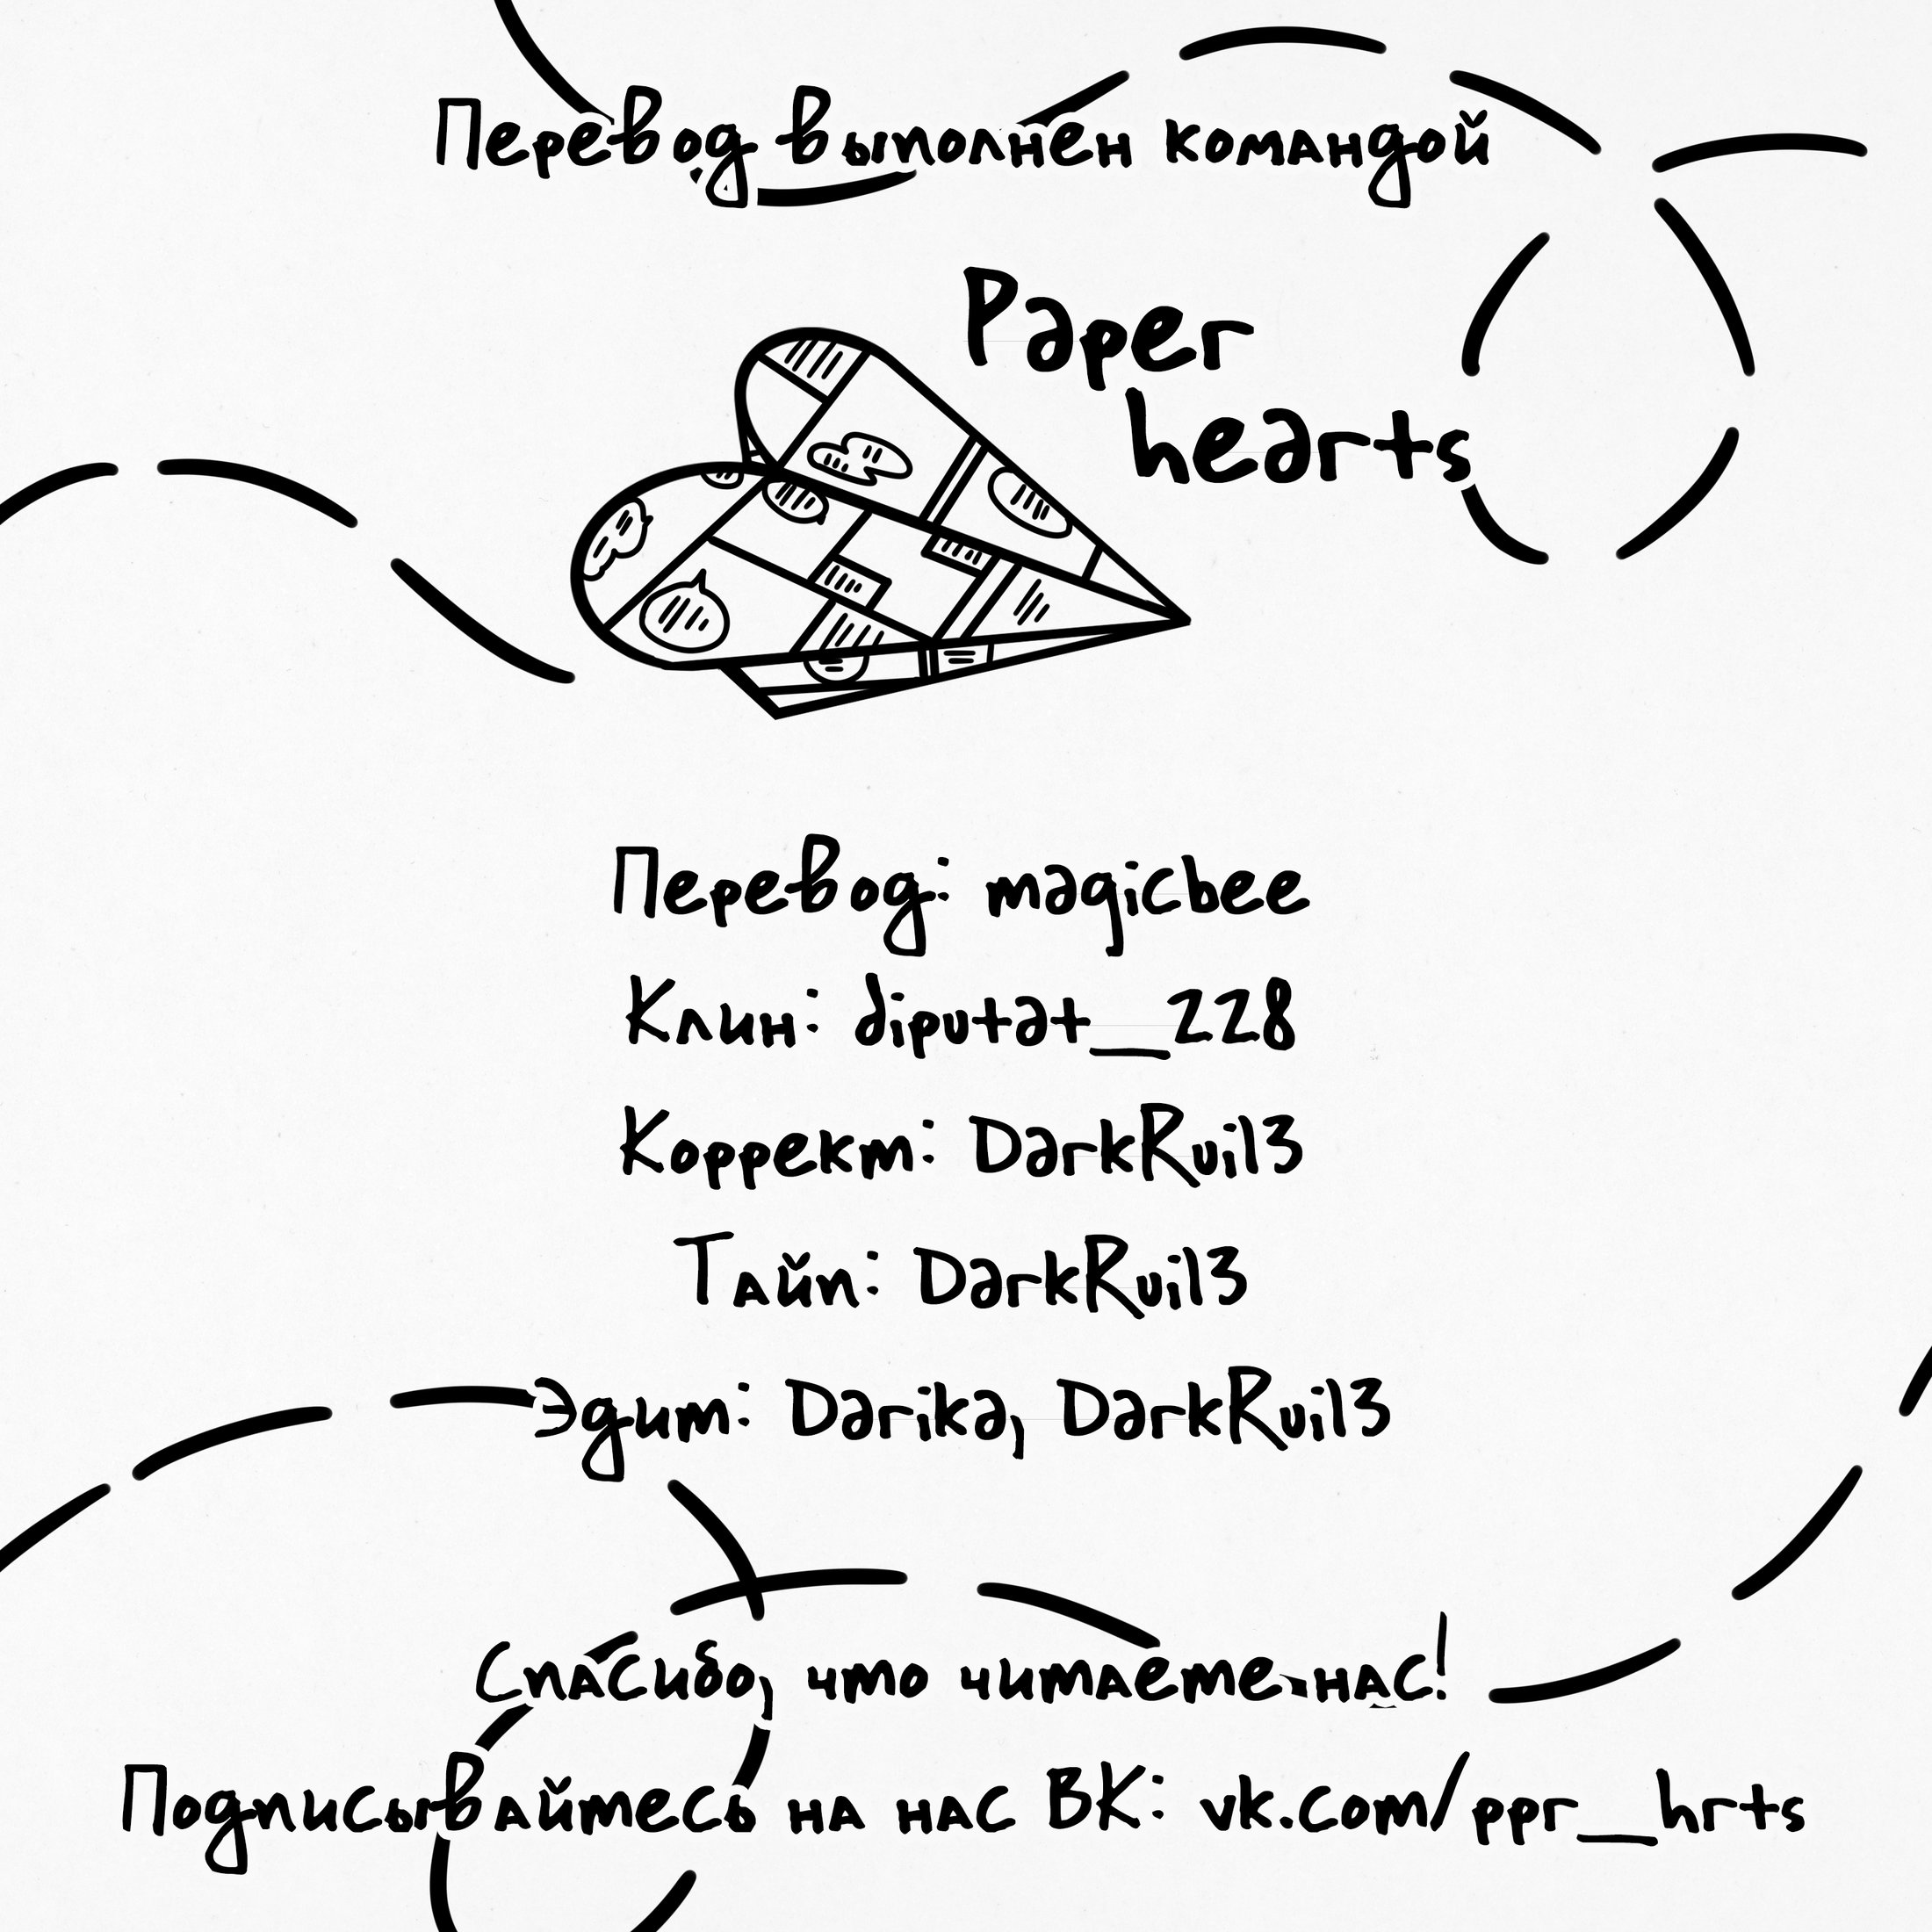 Перевод выполнен командой
Paper
hearts
Перевод: magicbee
Клин: diputat_228
Коррект: DarkRuil3
Тайп: DarkRuil3
Эдит: Darika, DarkRuil3
Спасибо, что читаете нас!
Подписывайтесь на нас ВК: vk.com/ppr_hrts